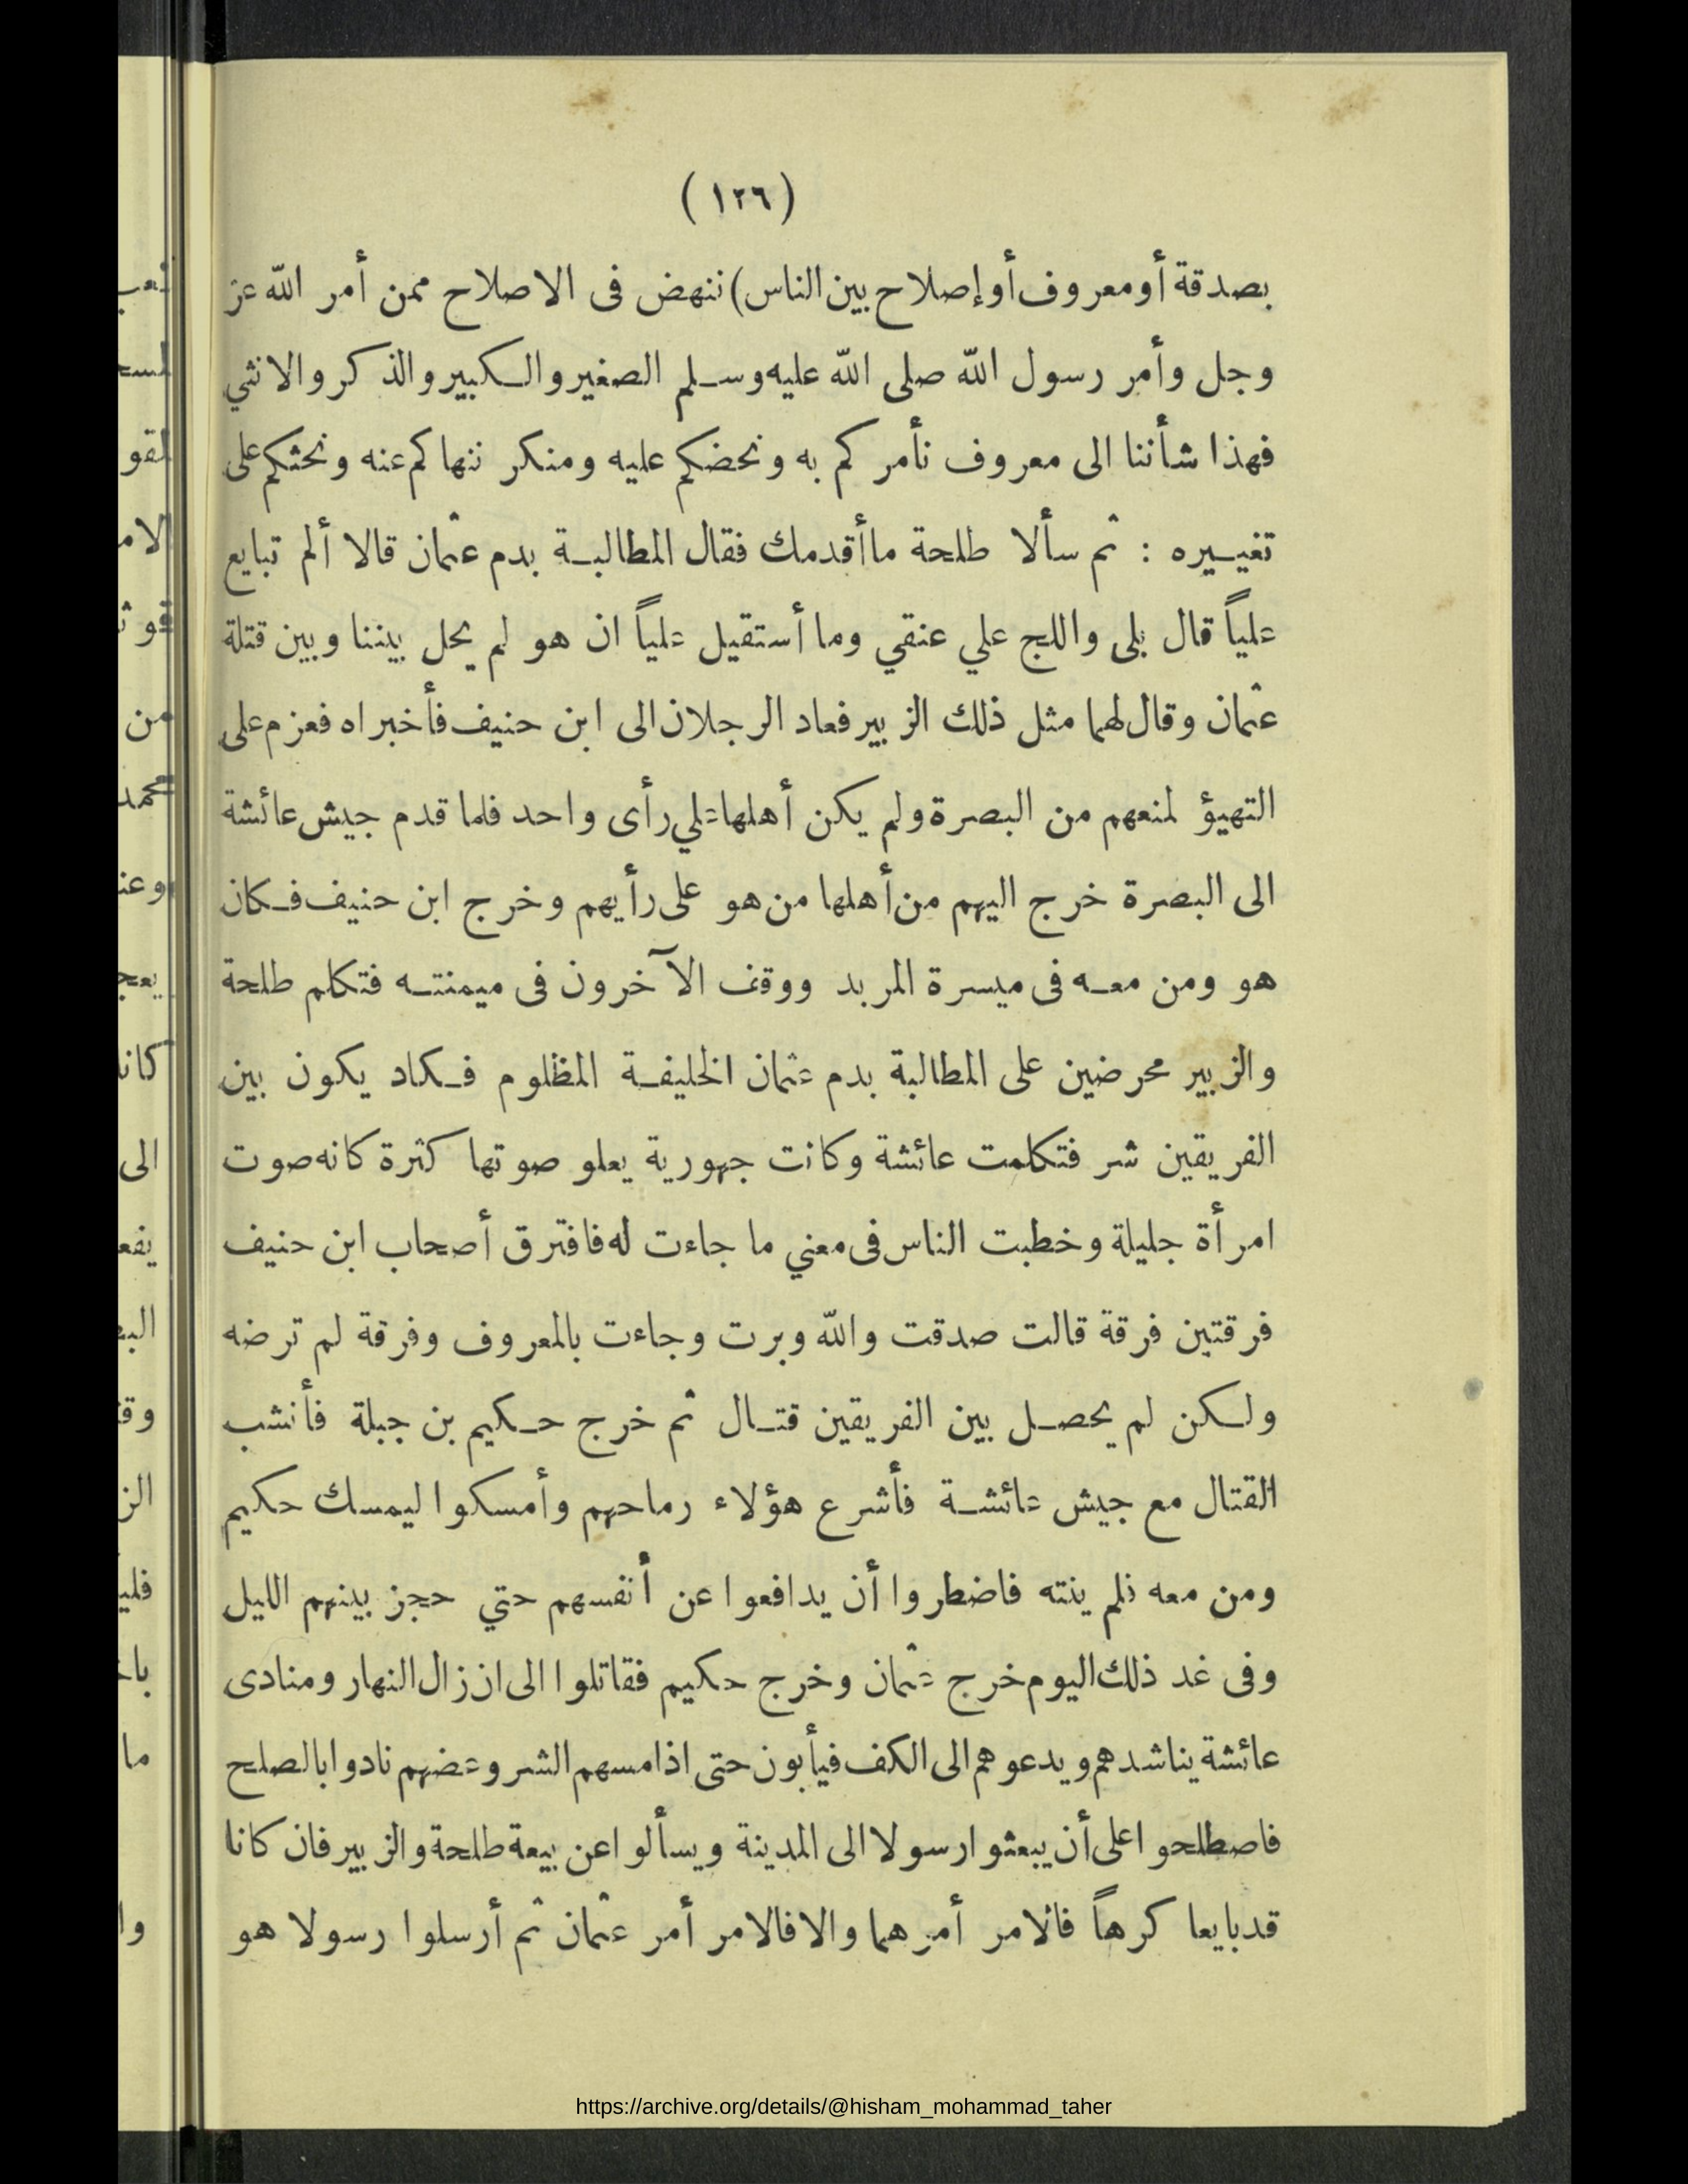 (١٢٦)
بصدقة أو معروف أو إصلاح بين الناس) ننهض فى الاصلاح ممن أمر الله عز
وجل وأمر رسول الله صلى الله عليه وسلم الصغير والكبير والذكر والانثي
فهذا شأننا الى معروف نأمركم به ونحضكم عليه ومنكر ننهاكم عنه ونحثكم على
تغييره : ثم سألا طلحة ما أقدمك فقال المطالبة بدم عثمان قالا ألم تبايع
علياً قال بلى واللج علي عنقي وما أستقيل علياً ان هو لم يحل بيننا وبين قتلة
عثمان وقال لهما مثل ذلك الزبير فعاد الرجلان الى ابن حنيف فأخبراه فعزم على
التهيؤ لمنعهم من البصرة ولم يكن أهلها علي رأى واحد فلما قدم جيش عائشة
الى البصرة خرج اليهم من أهلها من هو على رأيهم وخرج ابن حنيف فكان
هو ومن معه فى ميسرة المربد ووقف الآخرون فى ميمنته فتكلم طلحة
والزبير محرضين على المطالبة بدم عثمان الخليفة المظلوم فكاد يكون بين
الفريقين شر فتكلمت عائشة وكانت جهورية يعلو صوتها كثرة كانه صوت
امرأة جليلة وخطبت الناس فى معني ما جاءت له فافترق أصحاب ابن حنيف
فرقتين فرقة قالت صدقت والله وبرت وجاءت بالمعروف وفرقة لم ترضه
ولكن لم يحصل بين الفريقين قتال ثم خرج حكيم بن جبلة فأنشب
القتال مع جيش عائشة فأشرع هؤلاء رماحهم وأمسكوا ليمسك حكيم
ومن معه فلم ينته فاضطروا أن يدافعوا عن أنفسهم حتي حجز بينهم الليل
وفى غد ذلك اليوم خرج عثمان وخرج حكيم فقاتلوا الى ان زال النهار ومنادى
عائشة يناشدهم ويدعوهم الى الكف فيأبون حتى اذا مسهم الشر وعضهم نادوا بالصلح
فاصطلحوا على أن يبعثوا رسولا الى المدينة ويسألوا عن بيعة طلحة والزبير فان كانا
قد بايعا كرهاً فالامر أمرهما والا فالامر أمر عثمان ثم أرسلوا رسولا هو
https://archive.org/details/@hisham_mohammad_taher